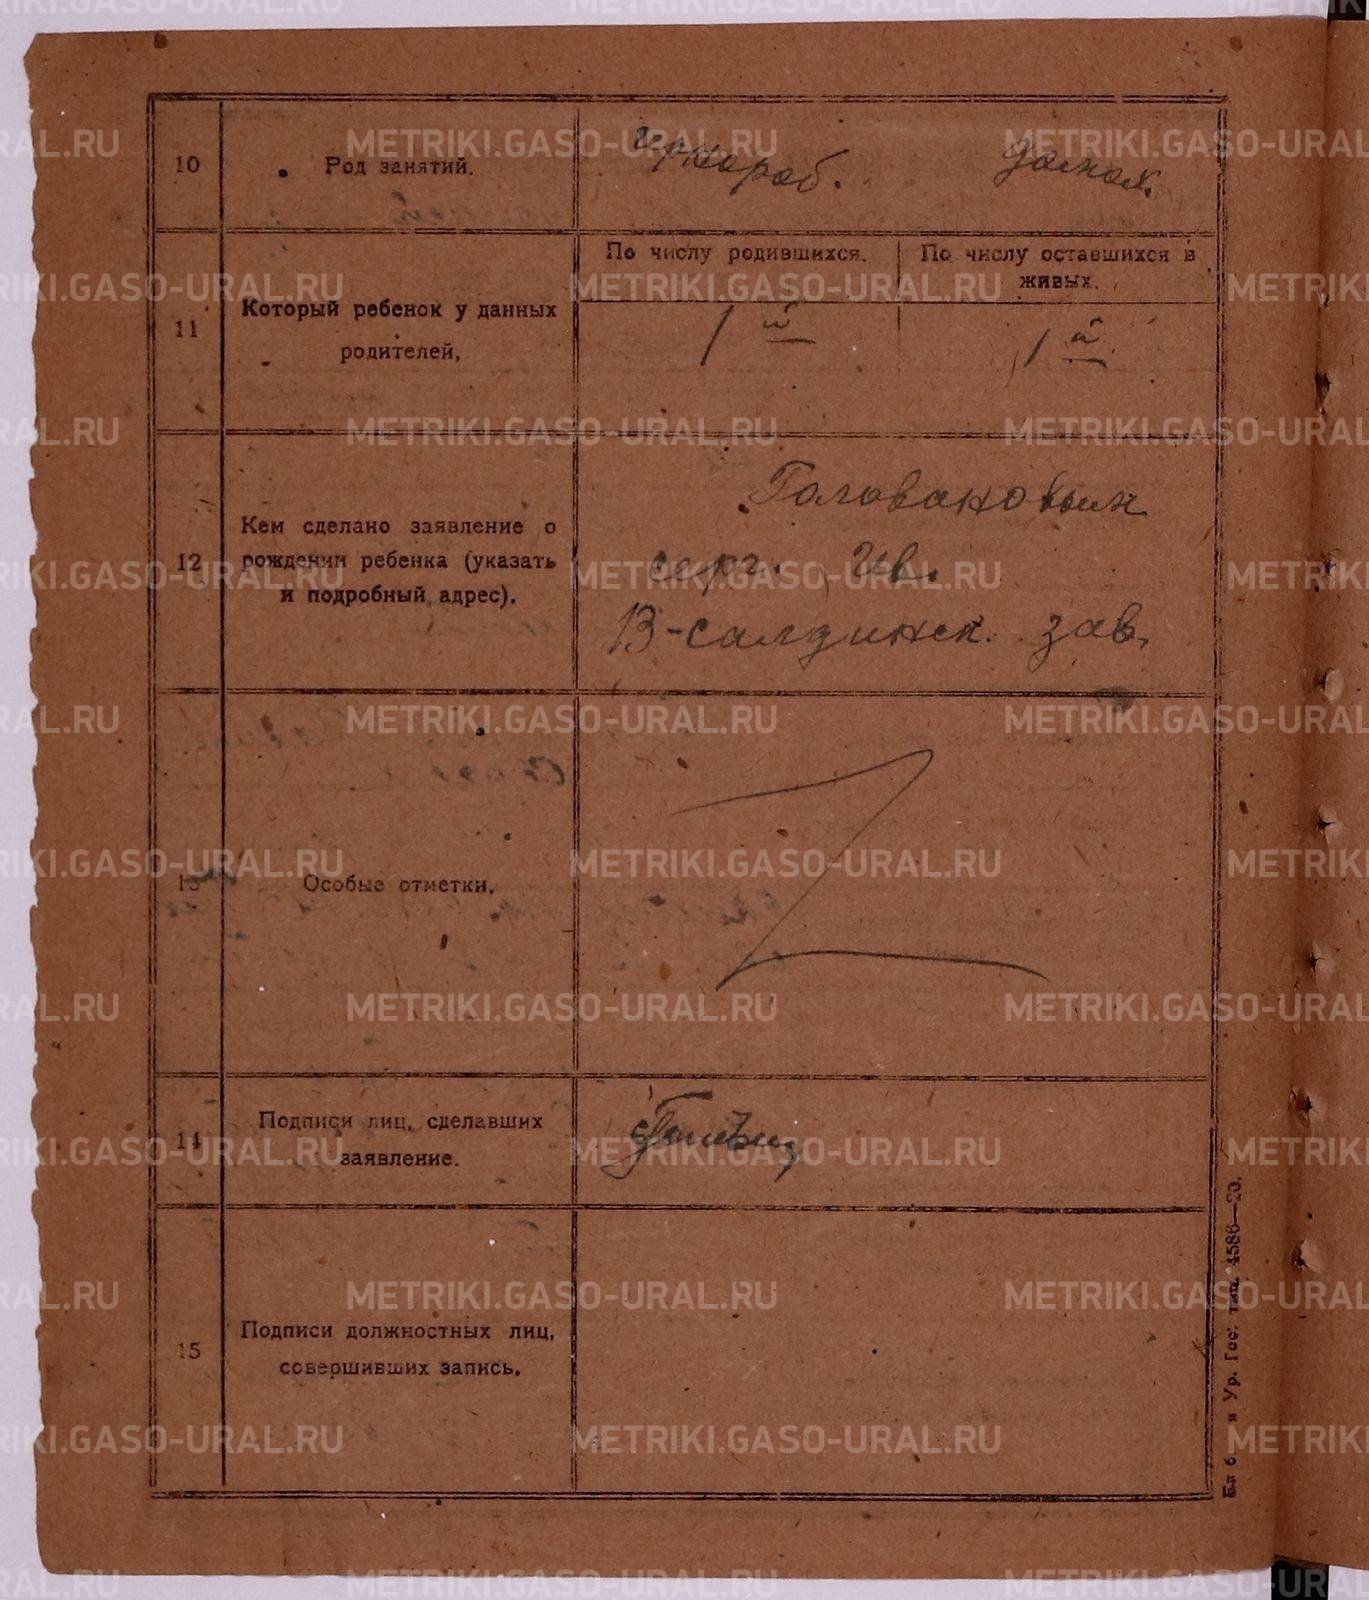 10 Род занятий. чернораб. домох.
По числу родившихся. По числу оставшихся в
живых.
11 Который ребенок у данных
родителей,
1й 1й
Головановым
12 Кем сделано заявление о
рождении ребенка (указать
и подробный адрес).
серг. Ив.
В-салдинск. зав.
13 Особые отметки.
14 Подписи лиц, сделавших
заявление.
15 Подписи должностных лиц,
совершивших запись.
Ур. Гос. тип. 4586—20.
METRIKI.GASO-URAL.RU